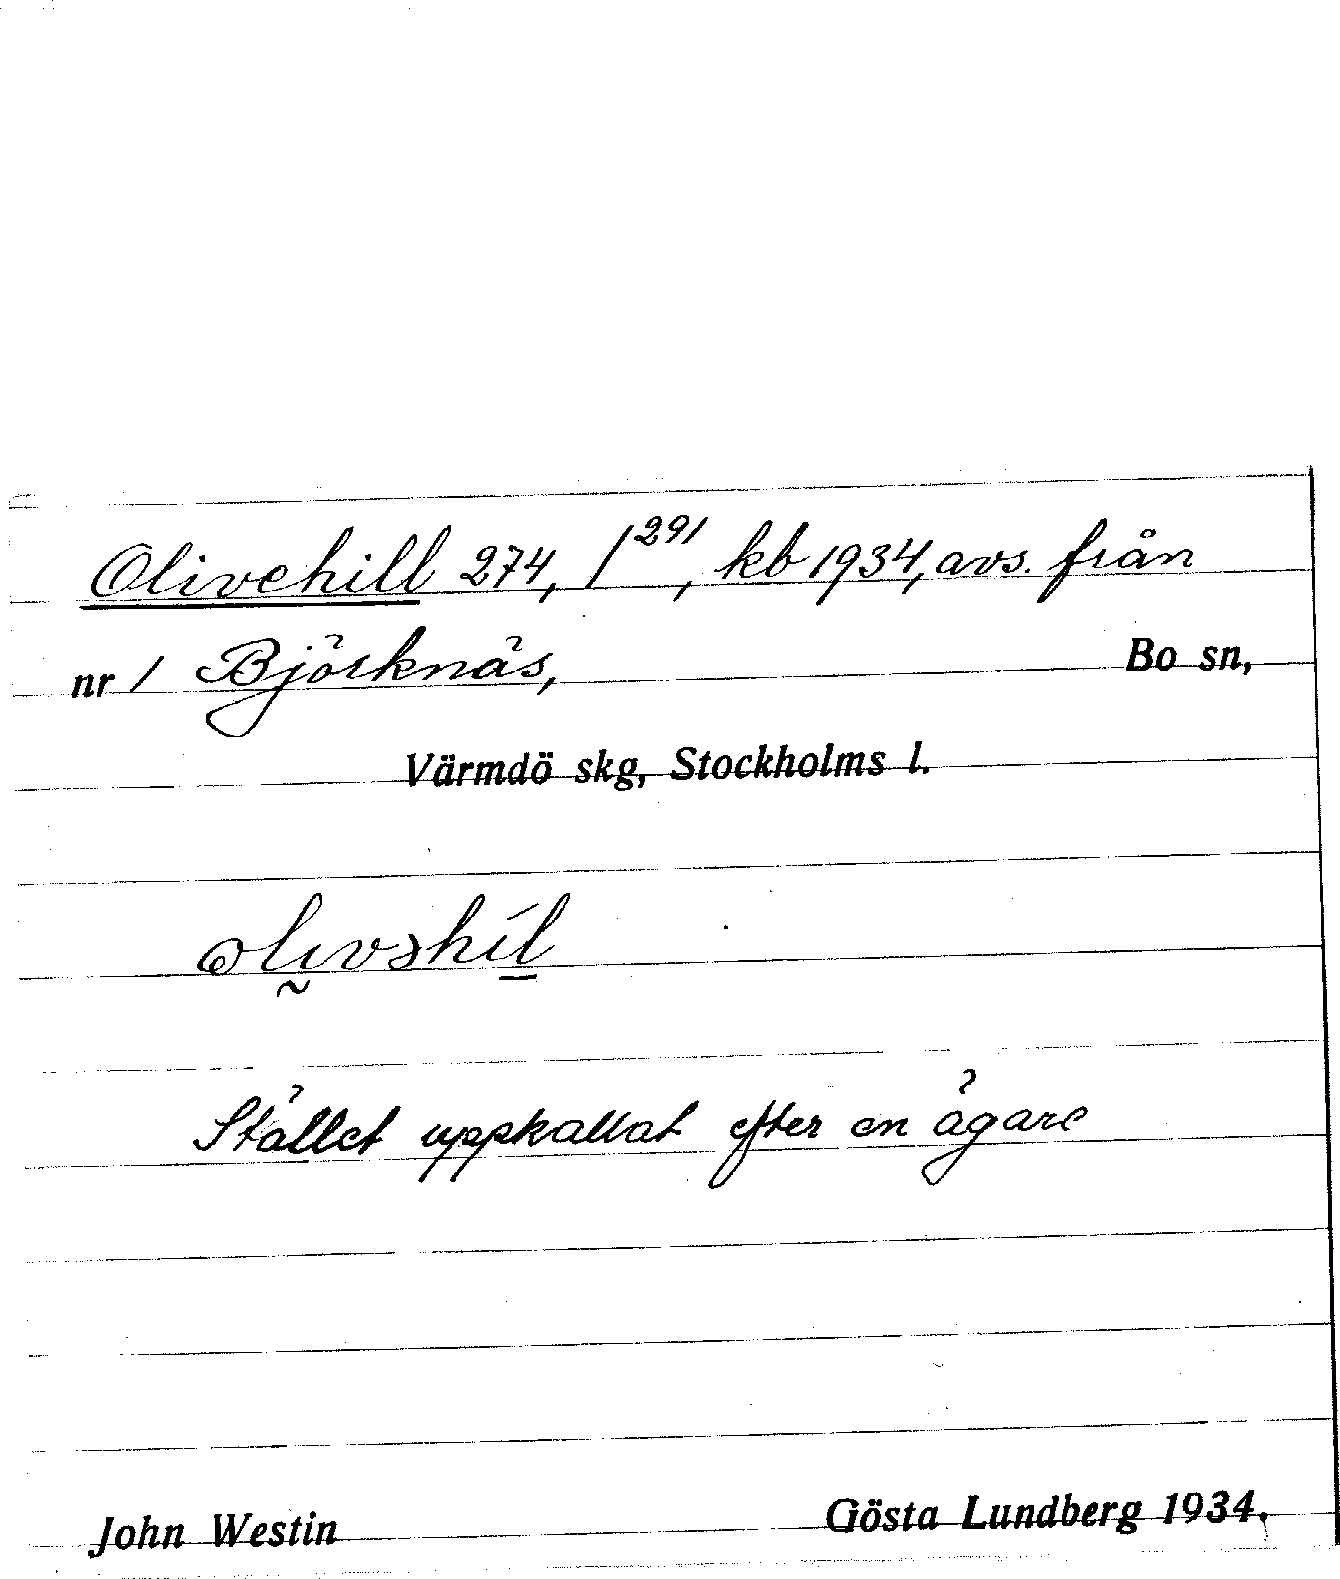 Olivehill 274, 1²⁹¹, kb 1934, avs. från
nr 1 Björknäs, Bo sn,
Värmdö skg, Stockholms l.
olivəhíl
Stället uppkallat efter en ägare
John Westin Gösta Lundberg 1934.